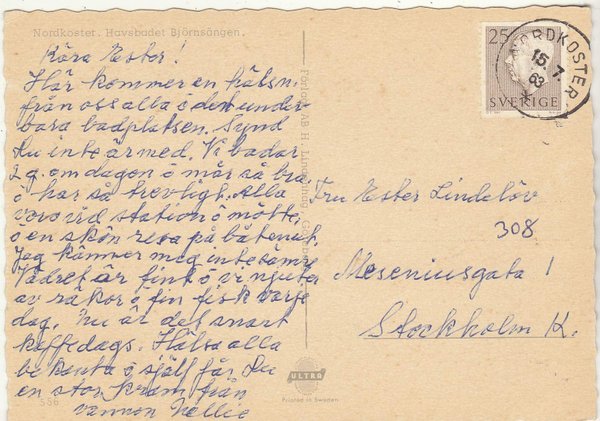 Nordkoster. Havsbadet Björnsängen.
Kära Ester!
Här kommer en hälsn.
från oss alla å den under-
bara badplatsen. Synd
du inte är med. Vi badar
2 g. om dagen o mår så bra
o har så trevligt. Alla
voro vid station o mötte,
o en skön resa på båten ut.
Jag känner mig inte
Vädret är fint o vi njuter
av räkor o fin fisk varje
dag. Nu är det snart
kaffedags. Hälsa alla
bekanta o själf får du
en stor kram från
vännen Nellie
556
Förlag: AB H.
ULTRA
Printed in Sweden
25
SVERIGE
NORDKOSTER
15. 7. 63
Fru Ester Lindelöv
308
Meseniusgata 1
Stockholm K.